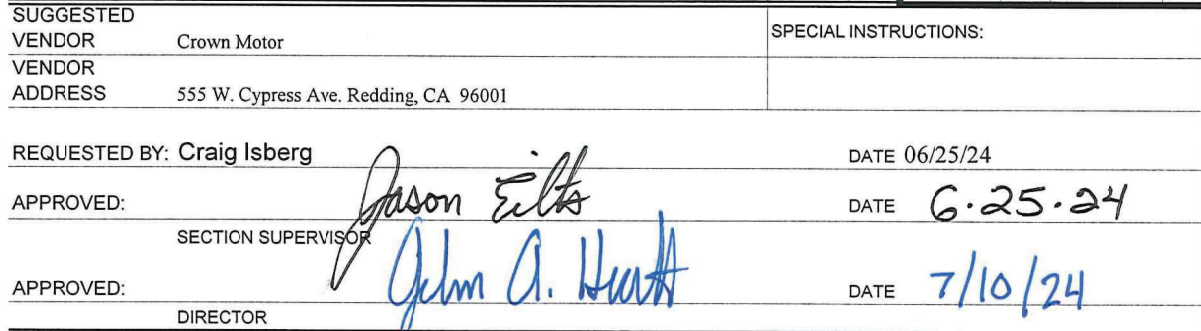 SUGGESTED
VENDOR Crown Motor SPECIAL INSTRUCTIONS:
VENDOR
ADDRESS 555 W. Cypress Ave. Redding, CA 96001
REQUESTED BY: Craig Isberg DATE 06/25/24
APPROVED: Jason Eilts DATE 6.25.24
SECTION SUPERVISOR
APPROVED: John A. DATE 7/10/24
DIRECTOR